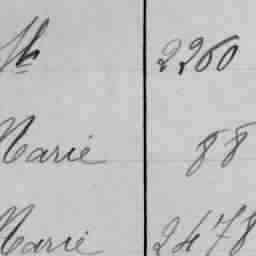 2260
Marie 88
Marie 2478